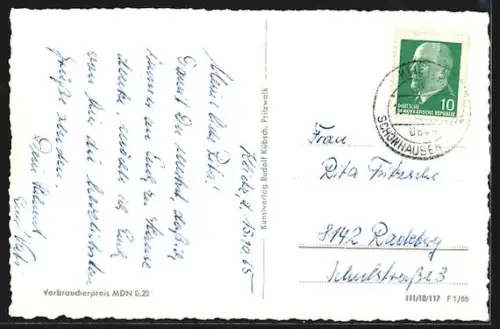 Meine liebe Rita!
Damit Du siehst, daß wir
immer an Euch zu Hause
denke, möchte ich Euch
von hier die herzlichsten
Grüße senden.
Dein
und Vati
15.10.65
Kunstverlag Rudolf Kübsch, Pritzwalk
Verbraucherpreis MDN 0,20
DEUTSCHE
DEMOKRATISCHE REPUBLIK
10
SCHÖNHAUSEN
Frau
Rita Fritzsche
8142 Radeberg
Schulstraße 3
III/18/117 F 1/65